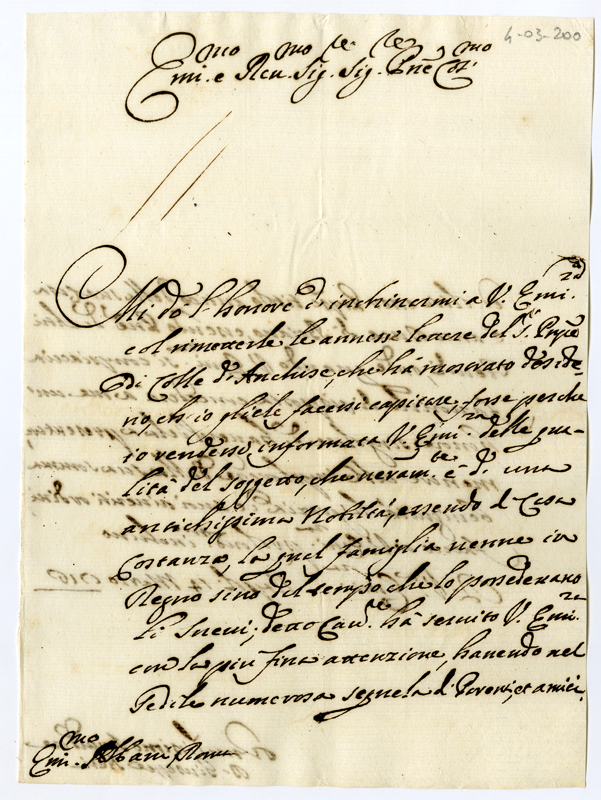 4-03-200
Emi.mo e Reu.mo Sig.re Sig.re Prne Col.mo
Mi dò l'honore d'inchinarmi a V. Emi.za
col rimetterle le annesse lettere del S.r
Di Colle d'Anchise, che hà mostrato deside-
rio, ch'io gliele facessi capitare, forse perche
io rendessi informata V. Emi.za delle qua-
lità del soggetto, che ueram.te è d'una
antichissima Nobiltà, essendo di Casa
Costanzo, la qual famiglia uenne in
Regno sino dal tempo che lo possedeuano
li Sueui; detto Cau.re hà seruito V. Emi.za
con la più fina attenzione, hauendo nel
Sedile numerosa seguela di Parenti, et amici,
Emi.mo Albani Roma